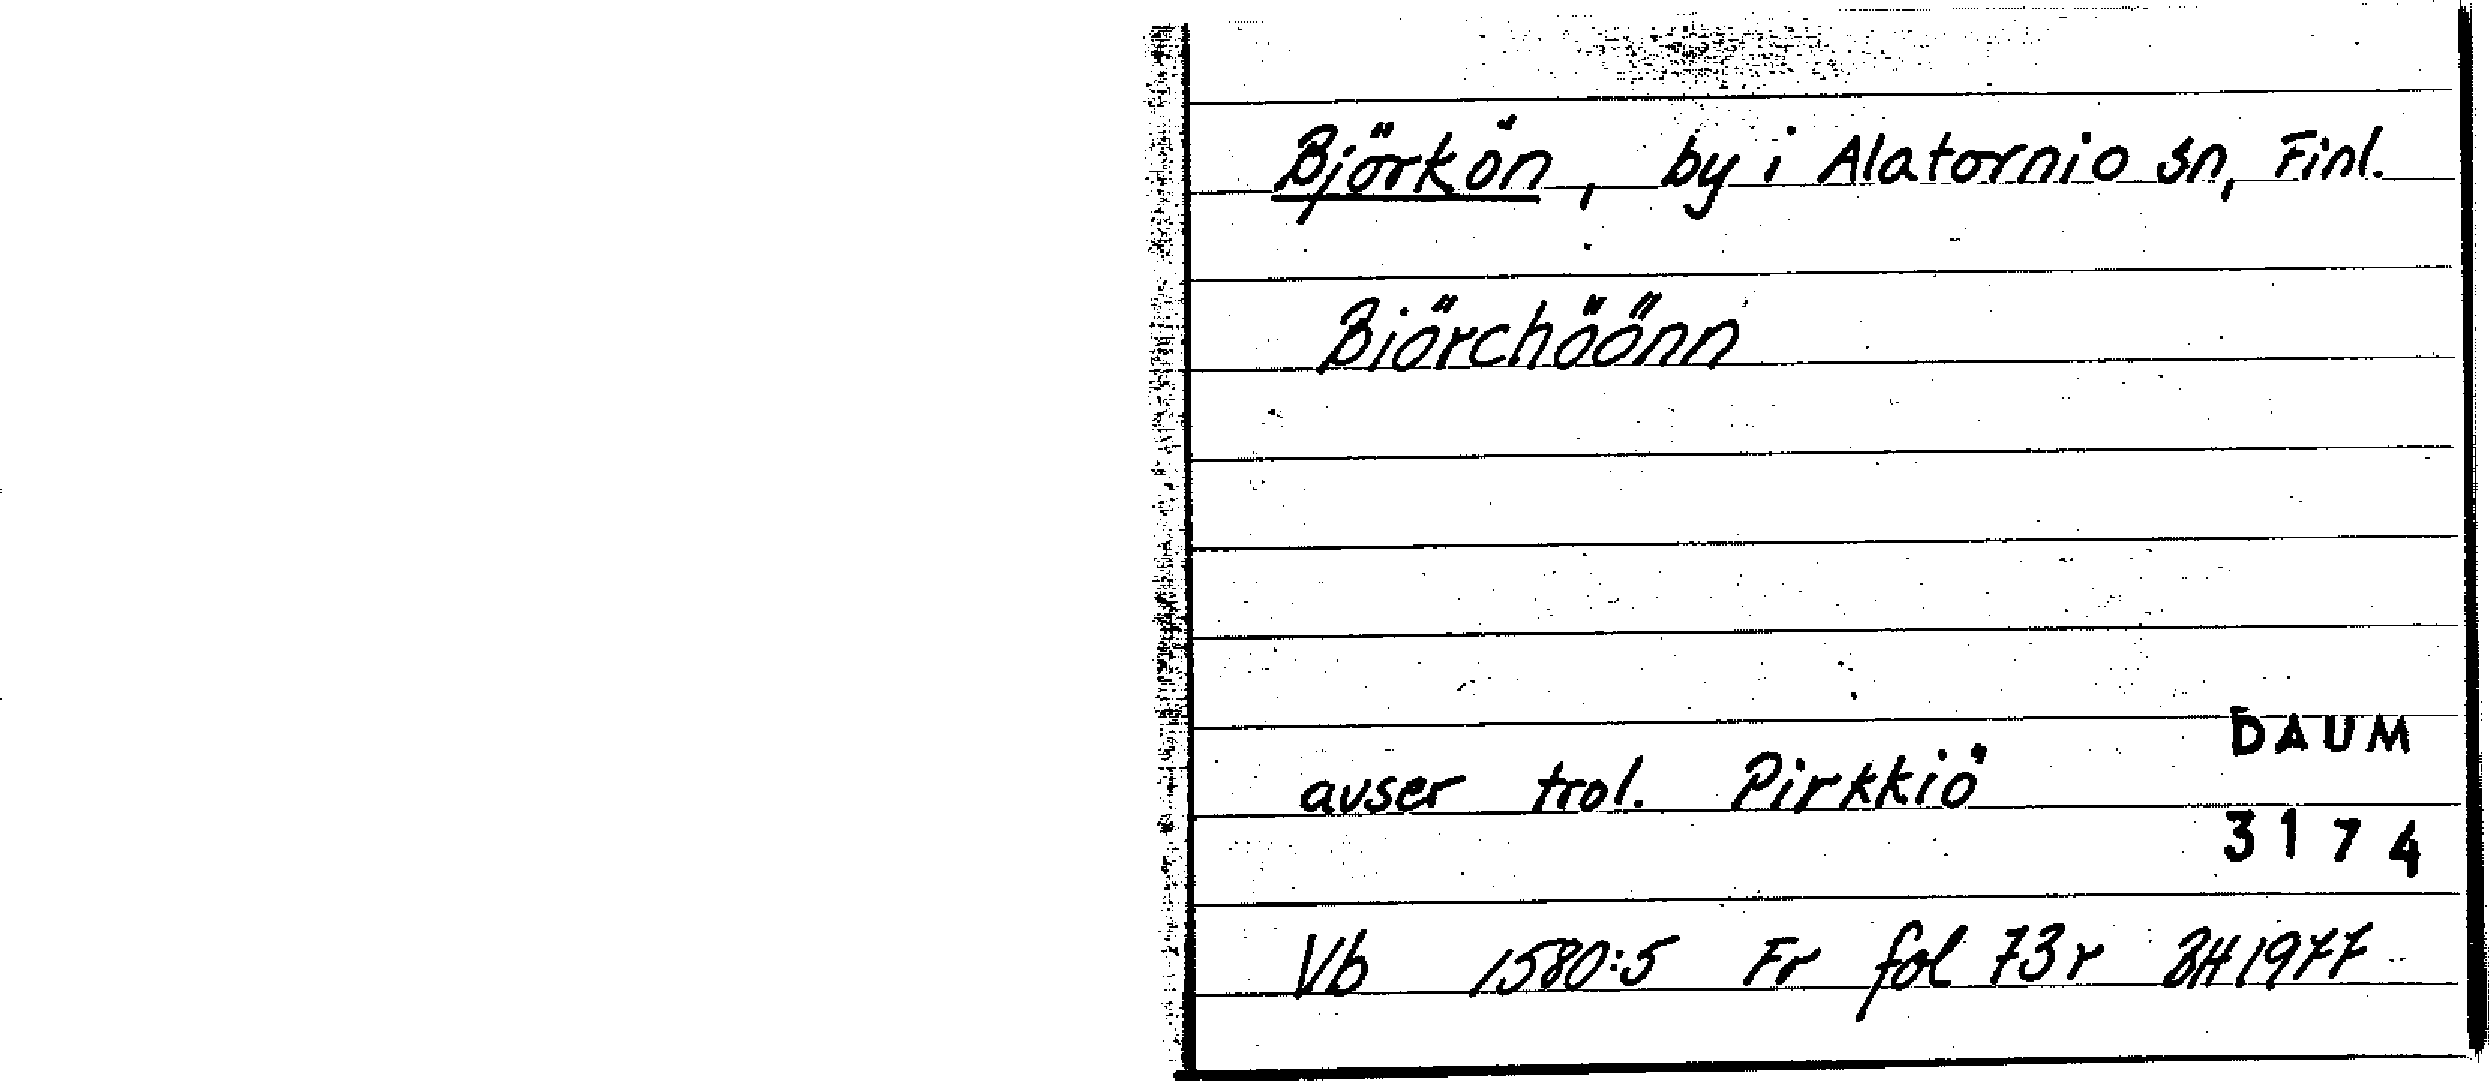 Björkön, by i Alatornio sn, Finl.
Biörchöönn
DAUM
avser trol. Pirkkiö
3174
Vb 1580:5 Fr fol 73r BH 1977